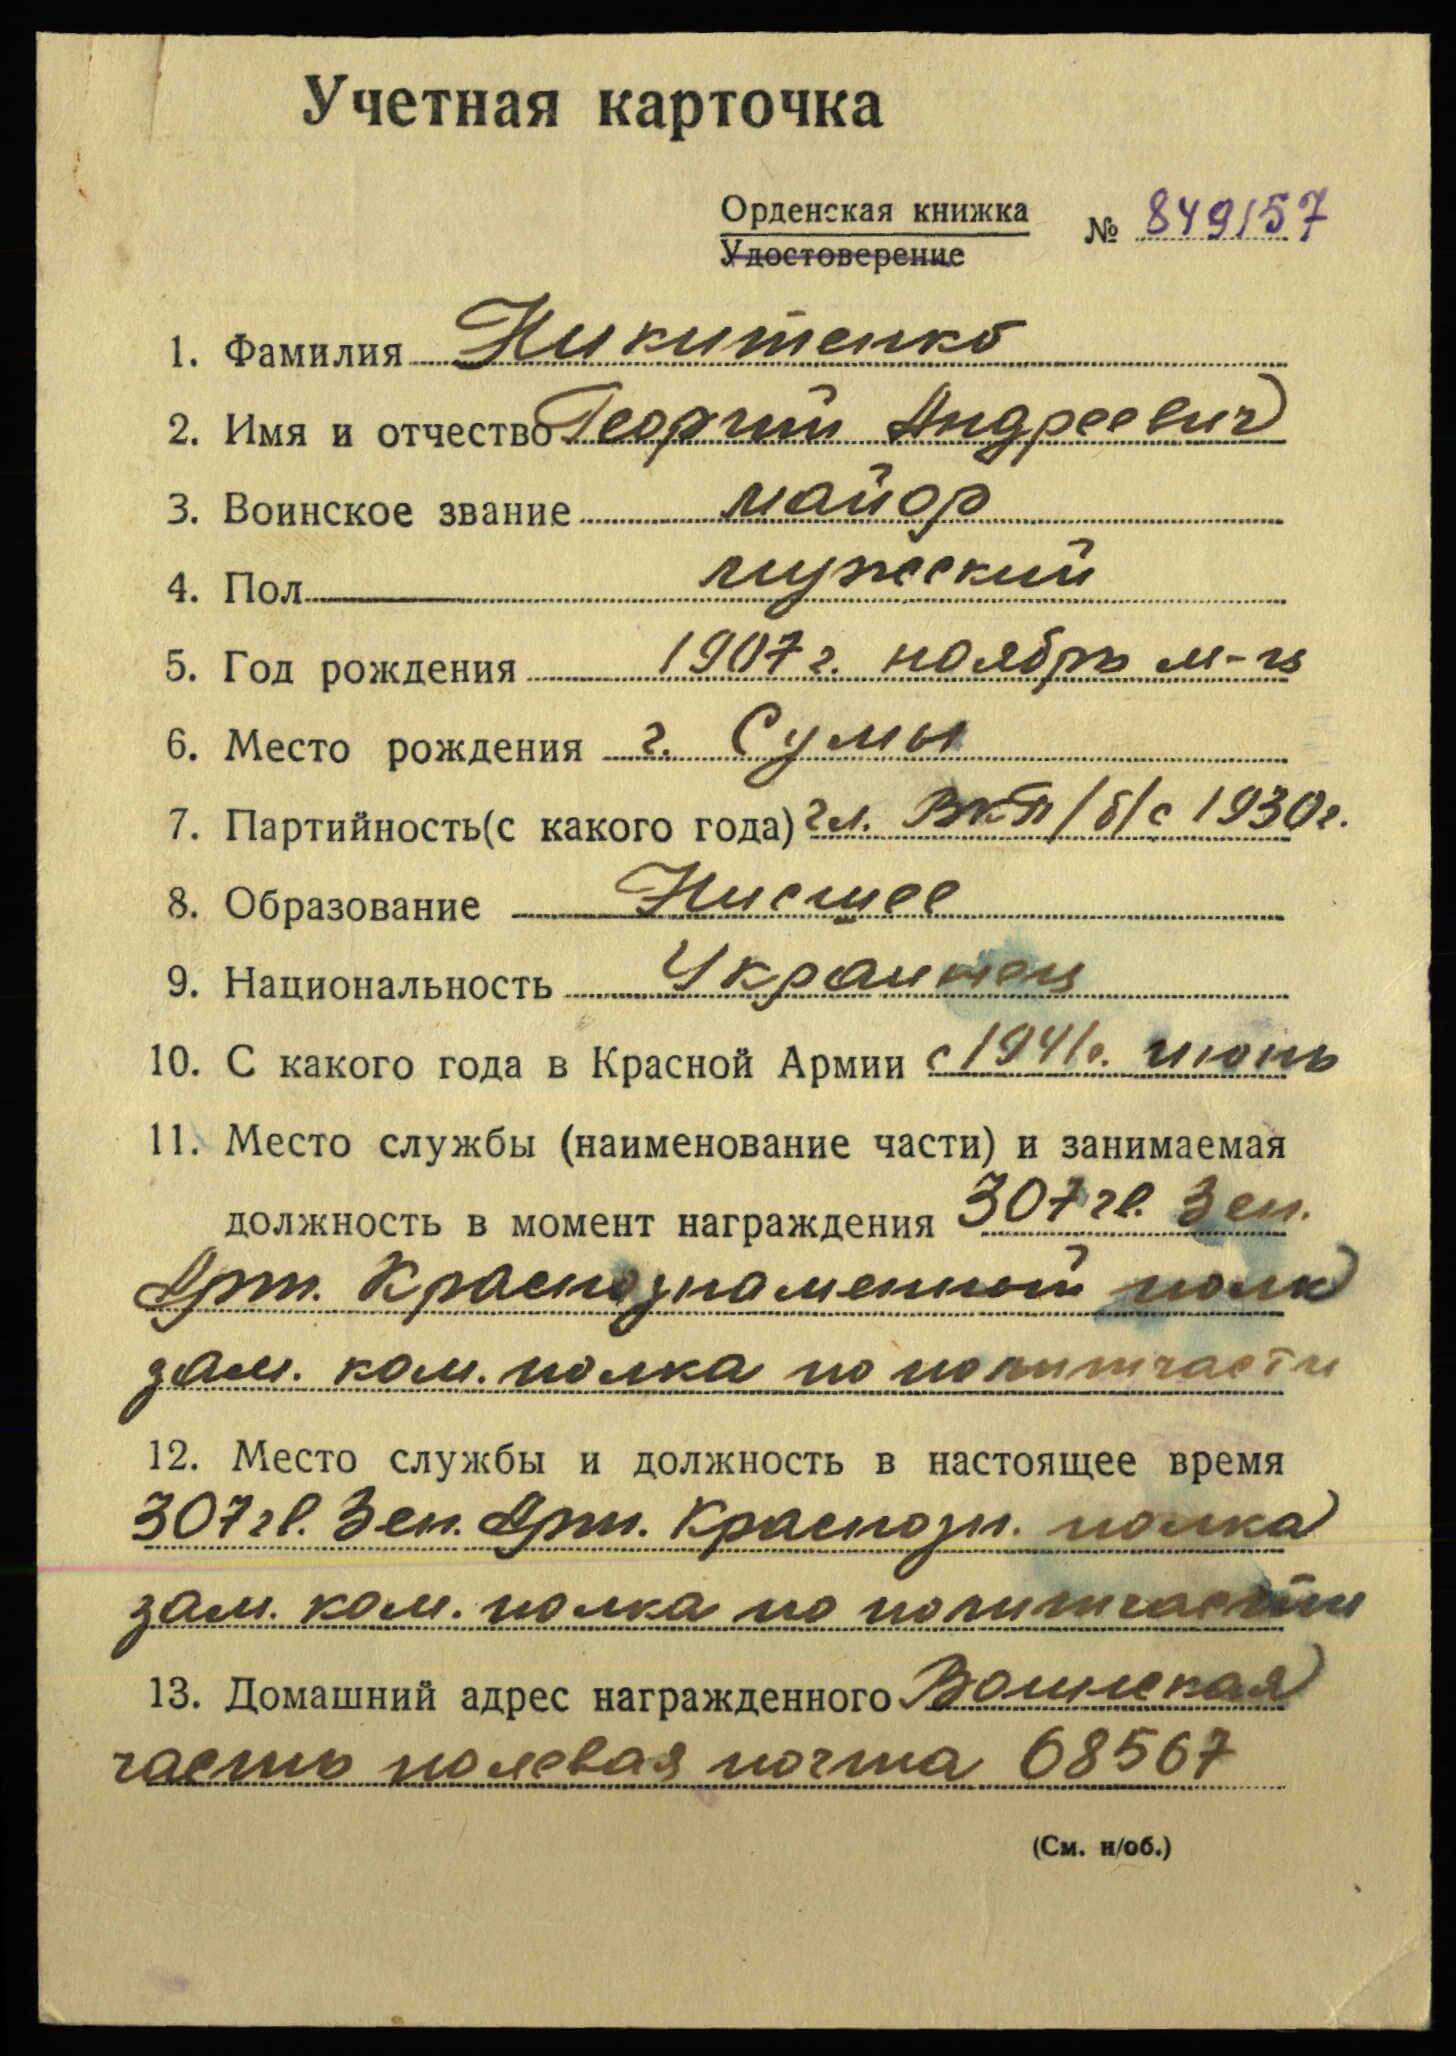 Учетная карточка
Орденская книжка
Удостоверение
№ 849157
1. Фамилия Никитенко
2. Имя и отчество Георгий Андреевич
3. Воинское звание майор
4. Пол мужской
5. Год рождения 1907 г. ноябрь м-ц
6. Место рождения г. Сумы
7. Партийность(с какого года) чл. ВКП/б/с 1930г.
8. Образование Нисшее
9. Национальность Украинец
10. С какого года в Красной Армии с 1941г. июнь
11. Место службы (наименование части) и занимаемая
должность в момент награждения 307 гв. Зен.
Арт. Краснознаменный полк
зам. ком. полка по политчасти
12. Место службы и должность в настоящее время
307 гв. Зен. Арт. Краснозн. полка
зам. ком. полка по политчасти
13. Домашний адрес награжденного Воинская
часть полевая почта 68567
(См. н/об.)